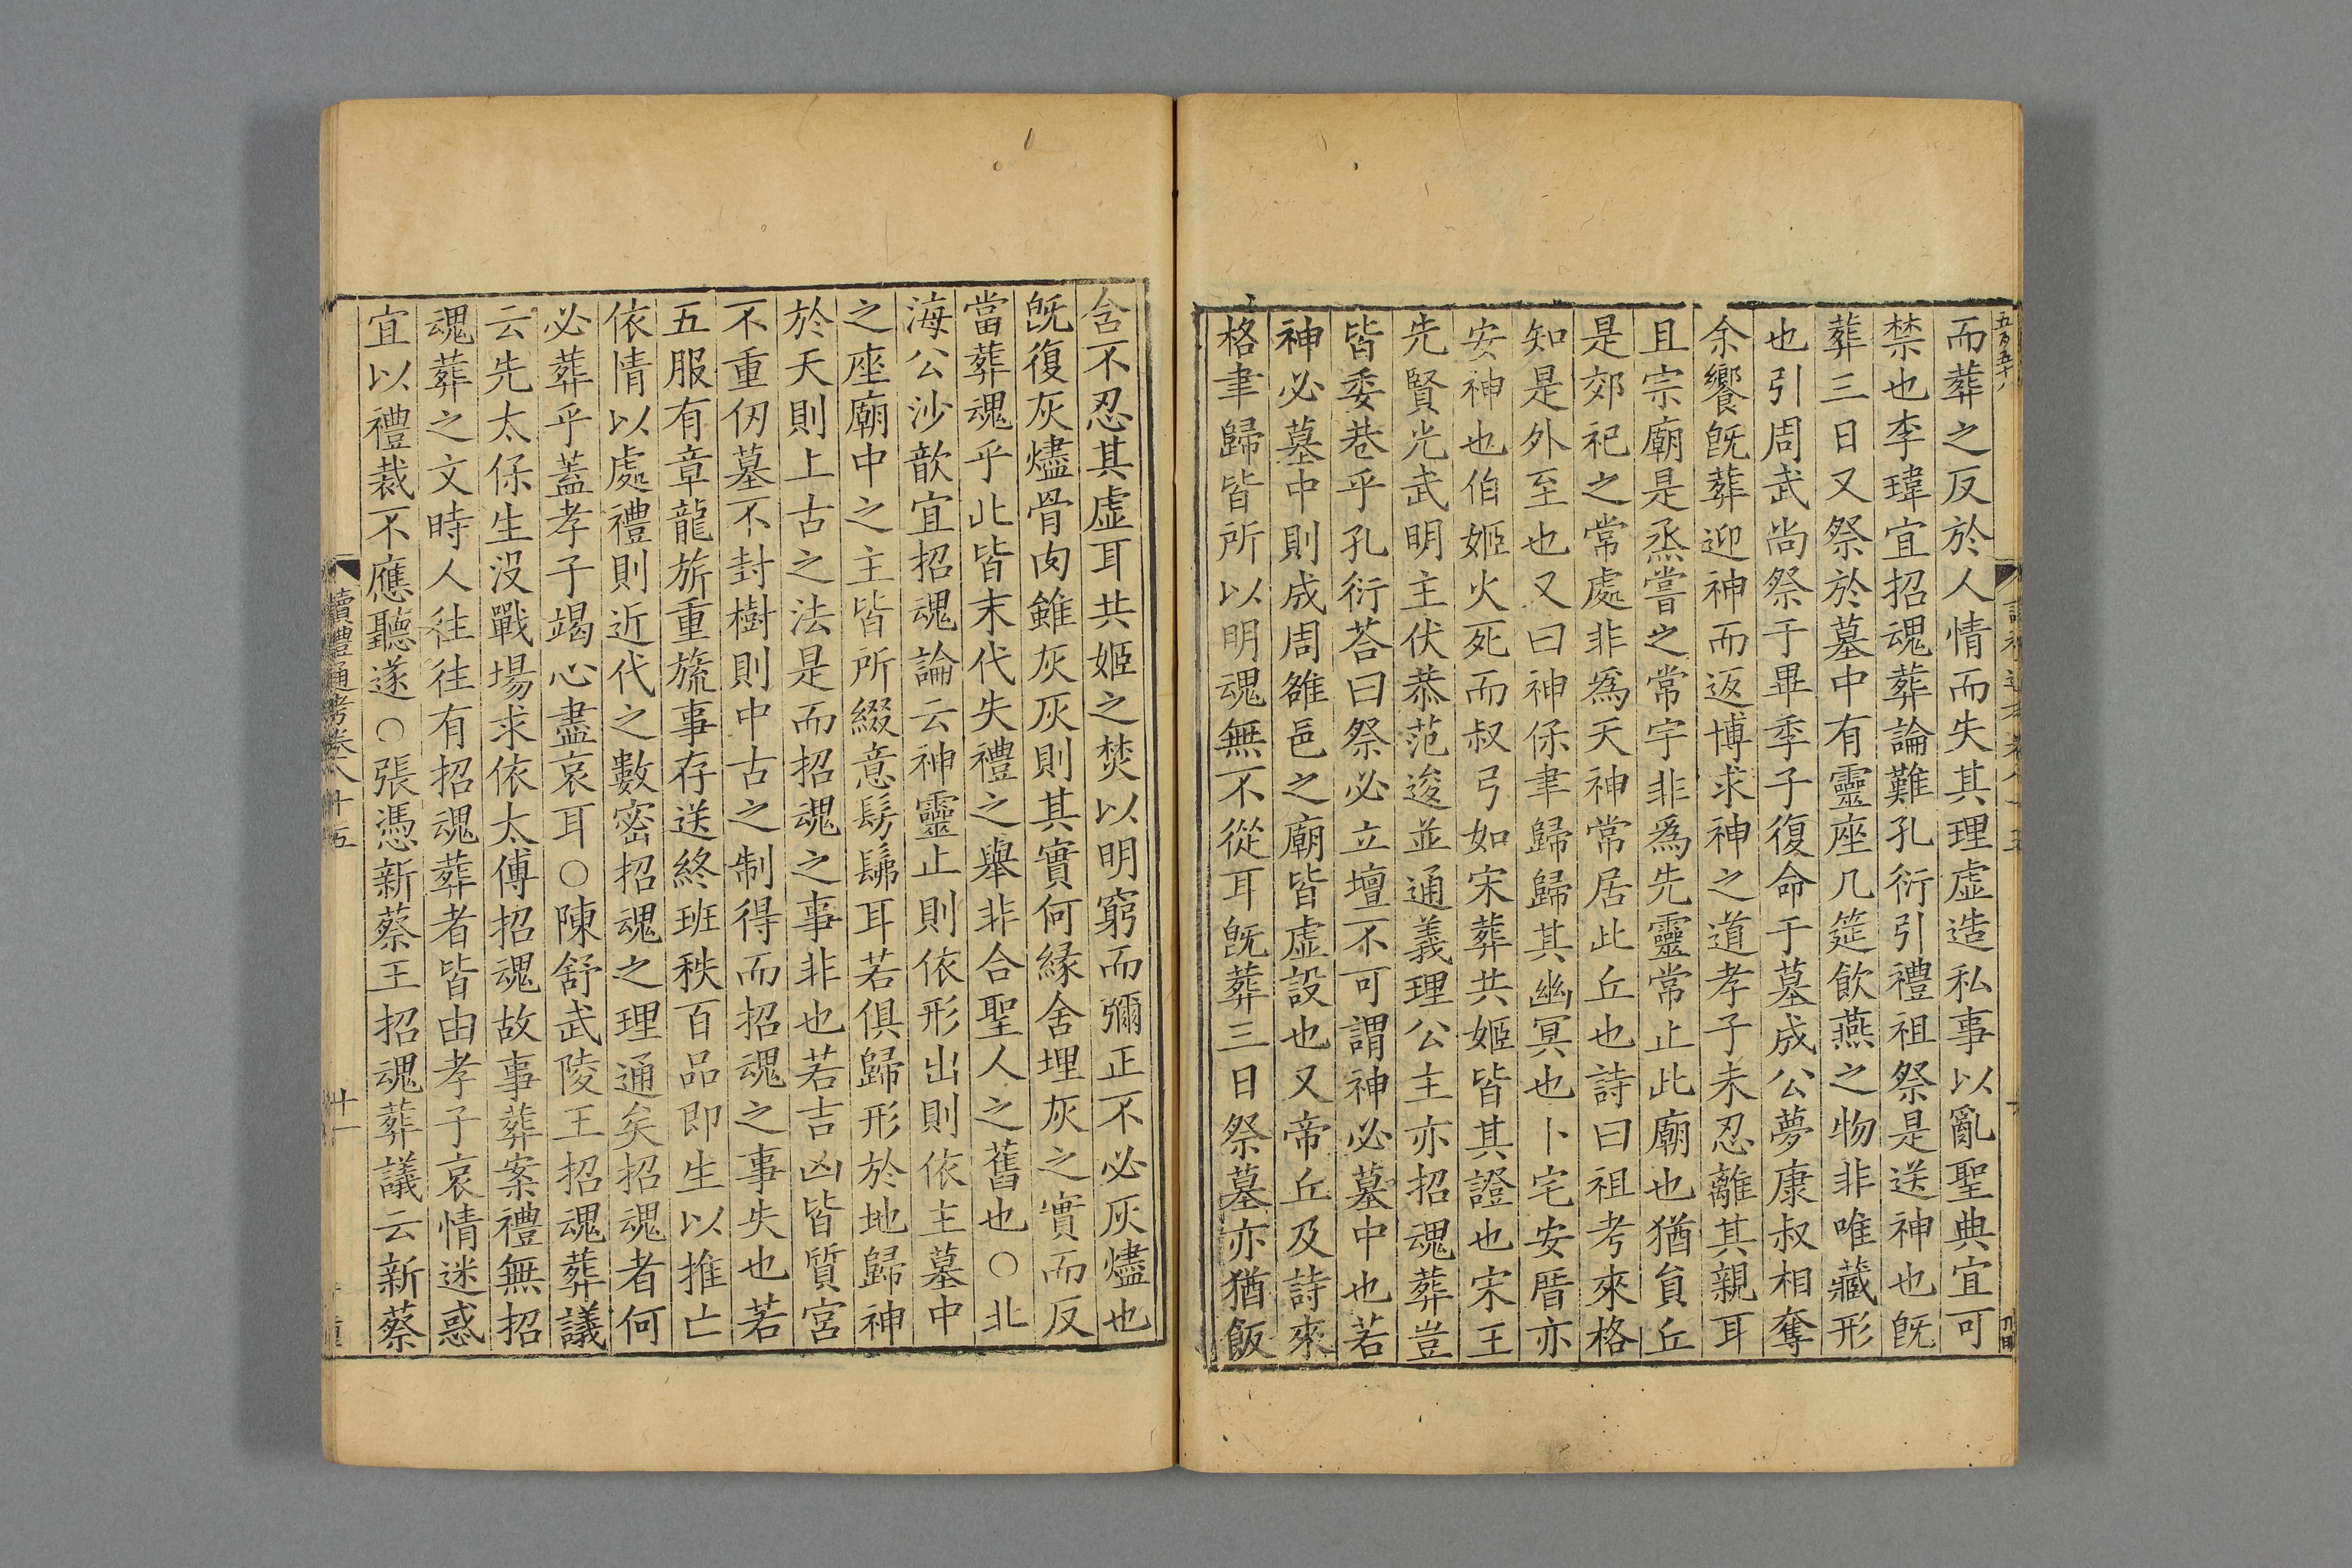 而葬之反於人情而失其理虛造私事以亂聖典宜可
禁也李瑋宜招魂葬論難孔衍引禮祖祭是送神也旣
葬三日又祭於墓中有靈座几筵飲燕之物非唯藏形
也引周武尚祭于畢季子復命于墓成公夢康叔相奪
余饗旣葬迎神而返博求神之道孝子未忍離其親耳
且宗廟是烝嘗之常宇非爲先靈常止此廟也猶負丘
是郊祀之常處非爲天神常居此丘也詩曰祖考來格
知是外至也又曰神保聿歸歸其幽冥也卜宅安厝亦
安神也伯姬火死而叔弓如宋葬共姬皆其證也宋王
先賢光武明主伏恭范逡並通義理公主亦招魂葬豈
皆委巷乎孔衍荅曰祭必立壇不可謂神必墓中也若
神必墓中則成周雒邑之廟皆虛設也又帝丘及詩來
格聿歸皆所以明魂無不從耳旣葬三日祭墓亦猶飯
含不忍其虛耳共姬之焚以明窮而彌正不必灰燼也
旣復灰燼骨肉雖灰灰則其實何緣舍埋灰之實而反
當葬魂乎此皆末代失禮之舉非合聖人之舊也○北
海公沙歆宜招魂論云神靈止則依形出則依主墓中
之座廟中之主皆所綴意髣髴耳若俱歸形於地歸神
於天則上古之法是而招魂之事非也若吉凶皆質宮
不重仞墓不封樹則中古之制得而招魂之事失也若
五服有章龍旂重旒事存送終班秩百品即生以推亡
依情以處禮則近代之數密招魂之理通矣招魂者何
必葬乎蓋孝子竭心盡哀耳○陳舒武陵王招魂葬議
云先太保生没戰場求依太傅招魂故事葬案禮無招
魂葬之文時人往往有招魂葬者皆由孝子哀情迷惑
宜以禮裁不應聽遂○張憑新蔡王招魂葬議云新蔡
讀禮通考卷八十五
十一